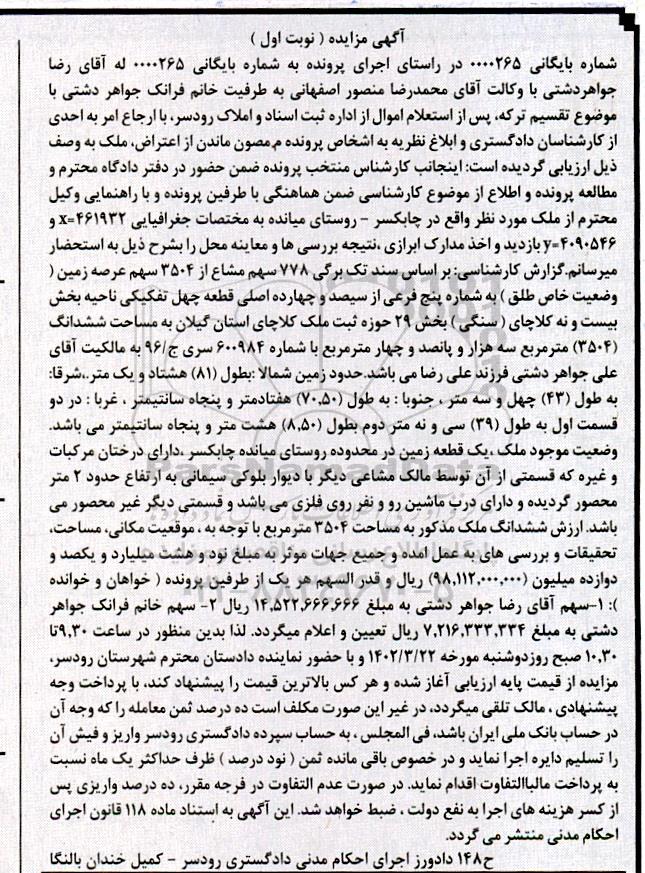 آگهی مزایده ( نوبت اول )
شماره بایگانی ۰۰۰۰۲۶۵ در راستای اجرای پرونده به شماره بایگانی ۰۰۰۰۲۶۵ له آقای رضا
جواهردشتی با وکالت آقای محمدرضا منصور اصفهانی به طرفیت خانم فرانک جواهر دشتی با
موضوع تقسیم ترکه، پس از استعلام اموال از اداره ثبت اسناد و املاک رودسر، با ارجاع امر به احدی
از کارشناسان دادگستری و ابلاغ نظریه به اشخاص پرونده م,مصون ماندن از اعتراض، ملک به وصف
ذیل ارزیابی گردیده است: اینجانب کارشناس منتخب پرونده ضمن حضور در دفتر دادگاه محترم و
مطالعه پرونده و اطلاع از موضوع کارشناسی ضمن هماهنگی با طرفین پرونده و با راهنمایی وکیل
محترم از ملک مورد نظر واقع در چابکسر - روستای میانده به مختصات جغرافیایی x=۴۶۱۹۳۲ و
y=۴۰۹۰۵۴۶ بازدید و اخذ مدارک ابرازی ،نتیجه بررسی ها و معاینه محل را بشرح ذیل به استحضار
میرسانم.گزارش کارشناسی: بر اساس سند تک برگی ۷۷۸ سهم مشاع از ۳۵۰۴ سهم عرصه زمین (
وضعیت خاص طلق ) به شماره پنج فرعی از سیصد و چهارده اصلی قطعه چهل تفکیکی ناحیه بخش
بیست و نه کلاچای ( سنگی ) بخش ۲۹ حوزه ثبت ملک کلاچای استان گیلان به مساحت ششدانگ
(۳۵۰۴) مترمربع سه هزار و پانصد و چهار مترمربع با شماره ۶۰۰۹۸۴ سری ج/۹۶ به مالکیت آقای
علی جواهر دشتی فرزند علی رضا می باشد.حدود زمین شمالا :بطول (۸۱) هشتاد و یک متر،.شرقا:
به طول (۴۳) چهل و سه متر ، جنوبا : به طول (۷۰,۵۰) هفتادمتر و پنجاه سانتیمتر ، غربا : در دو
قسمت اول به طول (۳۹) سی و نه متر دوم بطول (۸,۵۰) هشت متر و پنجاه سانتیمتر می باشد.
وضعیت موجود ملک ،یک قطعه زمین در محدوده روستای میانده چابکسر ،دارای درختان مرکبات
و غیره که قسمتی از آن توسط مالک مشاعی دیگر با دیوار بلوکی سیمانی به ارتفاع حدود ۲ متر
محصور گردیده و دارای درب ماشین رو و نفر روی فلزی می باشد و قسمتی دیگر غیر محصور می
باشد. ارزش ششدانگ ملک مذکور به مساحت ۳۵۰۴ مترمربع با توجه به ، موقعیت مکانی، مساحت،
تحقیقات و بررسی های به عمل امده و جمیع جهات موثر به مبلغ نود و هشت میلیارد و یکصد و
دوازده میلیون (۹۸,۱۱۲,۰۰۰,۰۰۰) ریال و قدر السهم هر یک از طرفین پرونده ( خواهان و خوانده
): ۱-سهم آقای رضا جواهر دشتی به مبلغ ۱۴,۵۲۲,۶۶۶,۶۶۶ ریال ۲- سهم خانم فرانک جواهر
دشتی به مبلغ ۷,۲۱۶,۳۳۳,۳۳۴ ریال تعیین و اعلام میگردد. لذا بدین منظور در ساعت ۹,۳۰تا
۱۰,۳۰ صبح روزدوشنبه مورخه ۱۴۰۲/۳/۲۲ و با حضور نماینده دادستان محترم شهرستان رودسر،
مزایده از قیمت پایه ارزیابی آغاز شده و هر کس بالاترین قیمت را پیشنهاد کند، با پرداخت وجه
پیشنهادی ، مالک تلقی میگردد، در غیر این صورت مکلف است ده درصد ثمن معامله را که وجه آن
در حساب بانک ملی ایران باشد، فی المجلس ، به حساب سپرده دادگستری رودسر واریز و فیش آن
را تسلیم دایره اجرا نماید و در خصوص باقی مانده ثمن ( نود درصد ) ظرف حداکثر یک ماه نسبت
به پرداخت مابالتفاوت اقدام نماید. در صورت عدم التفاوت در فرجه مقرر، ده درصد واریزی پس
از کسر هزینه های اجرا به نفع دولت ، ضبط خواهد شد. این آگهی به استناد ماده ۱۱۸ قانون اجرای
احکام مدنی منتشر می گردد.
ح۱۴۸ دادورز اجرای احکام مدنی دادگستری رودسر - کمیل خندان بالنگا
ParsNamadData